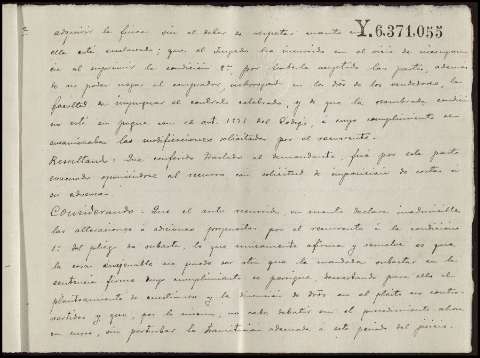 Y.6.371.055
adquirir la finca sin el deber de respetar cuanto en
ella esté enclavado; que el Juzgado ha incurrido en el vicio de incongruen
cia al suprimir la condición 2ª, por haberla aceptado las partes, además
de no poder negar al comprador, subrogado en los dros de los vendedores, la
facultad de impugnar el contrato celebrado, y de que la nombrada condici
no está en pugna con el art. del Código, a cuyo cumplimiento se
encaminaban las modificaciones solicitadas por el recurrente.
Resultando: Que conferido traslado al demandante, fué por esta parte
evacuado oponiéndose al recurso con solicitud de imposición de costas a
su adversa.
Considerando: Que el auto recurrido, en cuanto declara inadmisibles
las alteraciones o adiciones propuestas por el recurrente a la condición
1ª del pliego de subasta, lo que únicamente afirma y resuelve es que
la cosa enagenable no puede ser otra que la mandada subastar en la
sentencia firme cuyo cumplimiento se persigue, descartando para ello el
planteamiento de cuestiones y la discusión de dros en el pleito no contro-
vertidos y que, por lo mismo, no cabe debatir en el procedimiento ahora
en curso, sin perturbar la tramitación adecuada a este período del juicio.